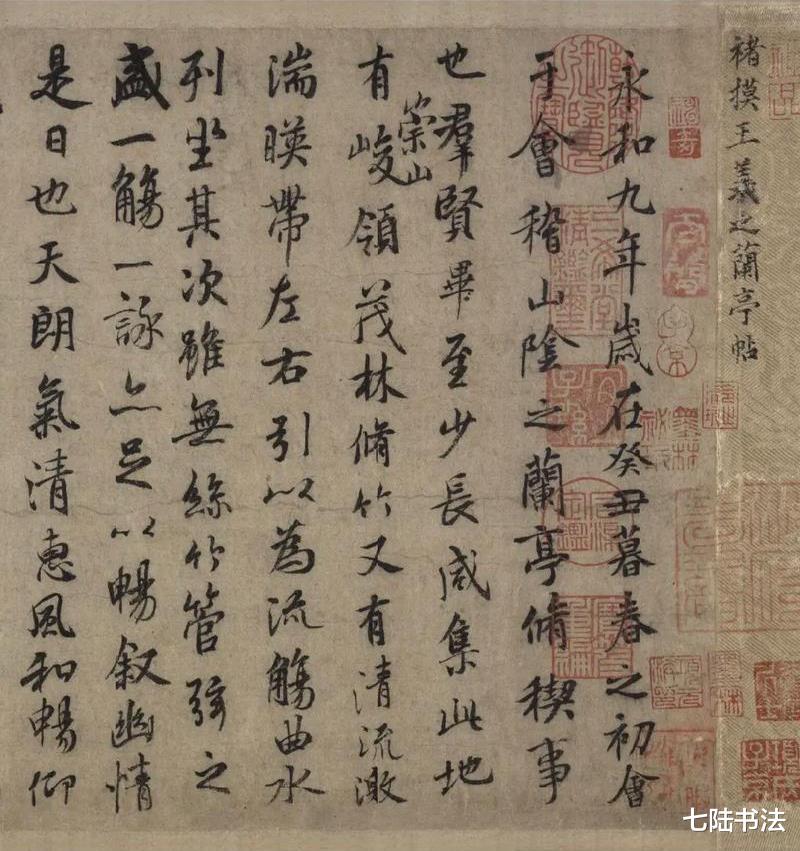 褚摸王羲之蘭亭帖
永和九年歲在癸丑暮春之初會
于會稽山陰之蘭亭脩稧事
也羣賢畢至少長咸集此地
有崇山峻領茂林脩竹又有清流激
湍暎帶左右引以為流觴曲水
列坐其次雖無絲竹管弦之
盛一觴一詠亦足以暢叙幽情
是日也天朗氣清惠風和暢仰
七陆书法